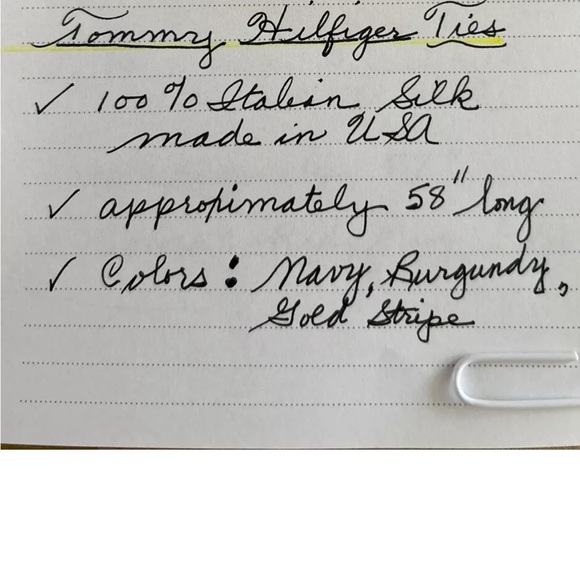 Tommy Hilfiger Ties
✓ 100% Italian Silk
made in USA
✓ approximately 58" long
✓ Colors: Navy, Burgundy,
Gold Stripe